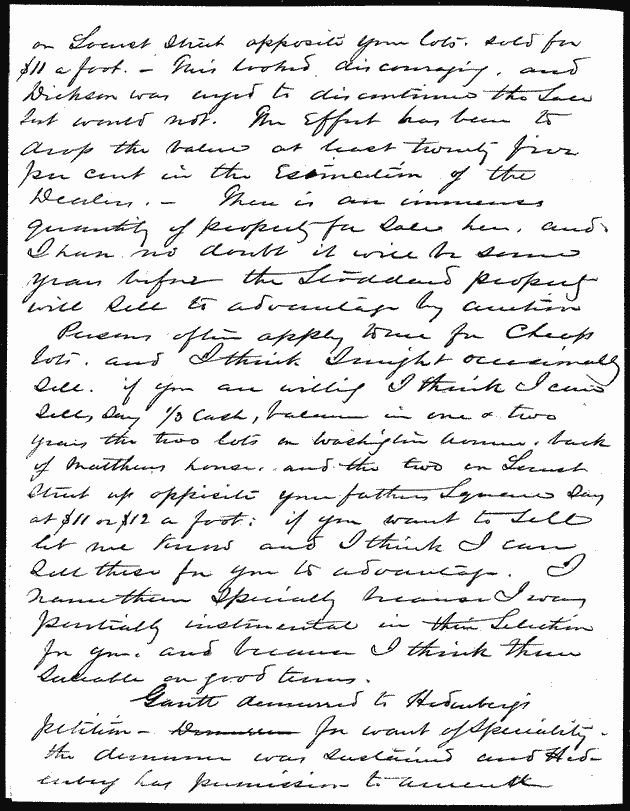 on Locust Street opposite your lots. sold for
$11 a foot. – This looked discouraging, and
Dickson was urged to discontinue the Sale
but would not. The Effect has been to
drop the value at least twenty five
per cent in the Estimation of the
Dealers. – There is an immense
quantity of property for Sale here, and
I have no doubt it will be some
years before the Stoddard property
will sell to advantage by auction
Persons often apply to me for Cheap
lots. and I think I might occasionally
Sell. if you are willing I think I can
Sell, Say 1/3 Cash, balance in one & two
years the two lots on Washington Avenue, back
of Matthews house. and the two on Locust
Street up opposite your fathers Square Say
at $11 or $12 a foot: if you want to Sell
let me know and I think I can
Sell these for you to advantage. I
name them Specially because I was
partially instrumental in their Selection
for you. and because I think them
Saleable on good terms.
Gantt demurred to Hedenberg's
petition – for want of Speciality –
the demurrer was sustained and Hed-
enberg has permission to amend